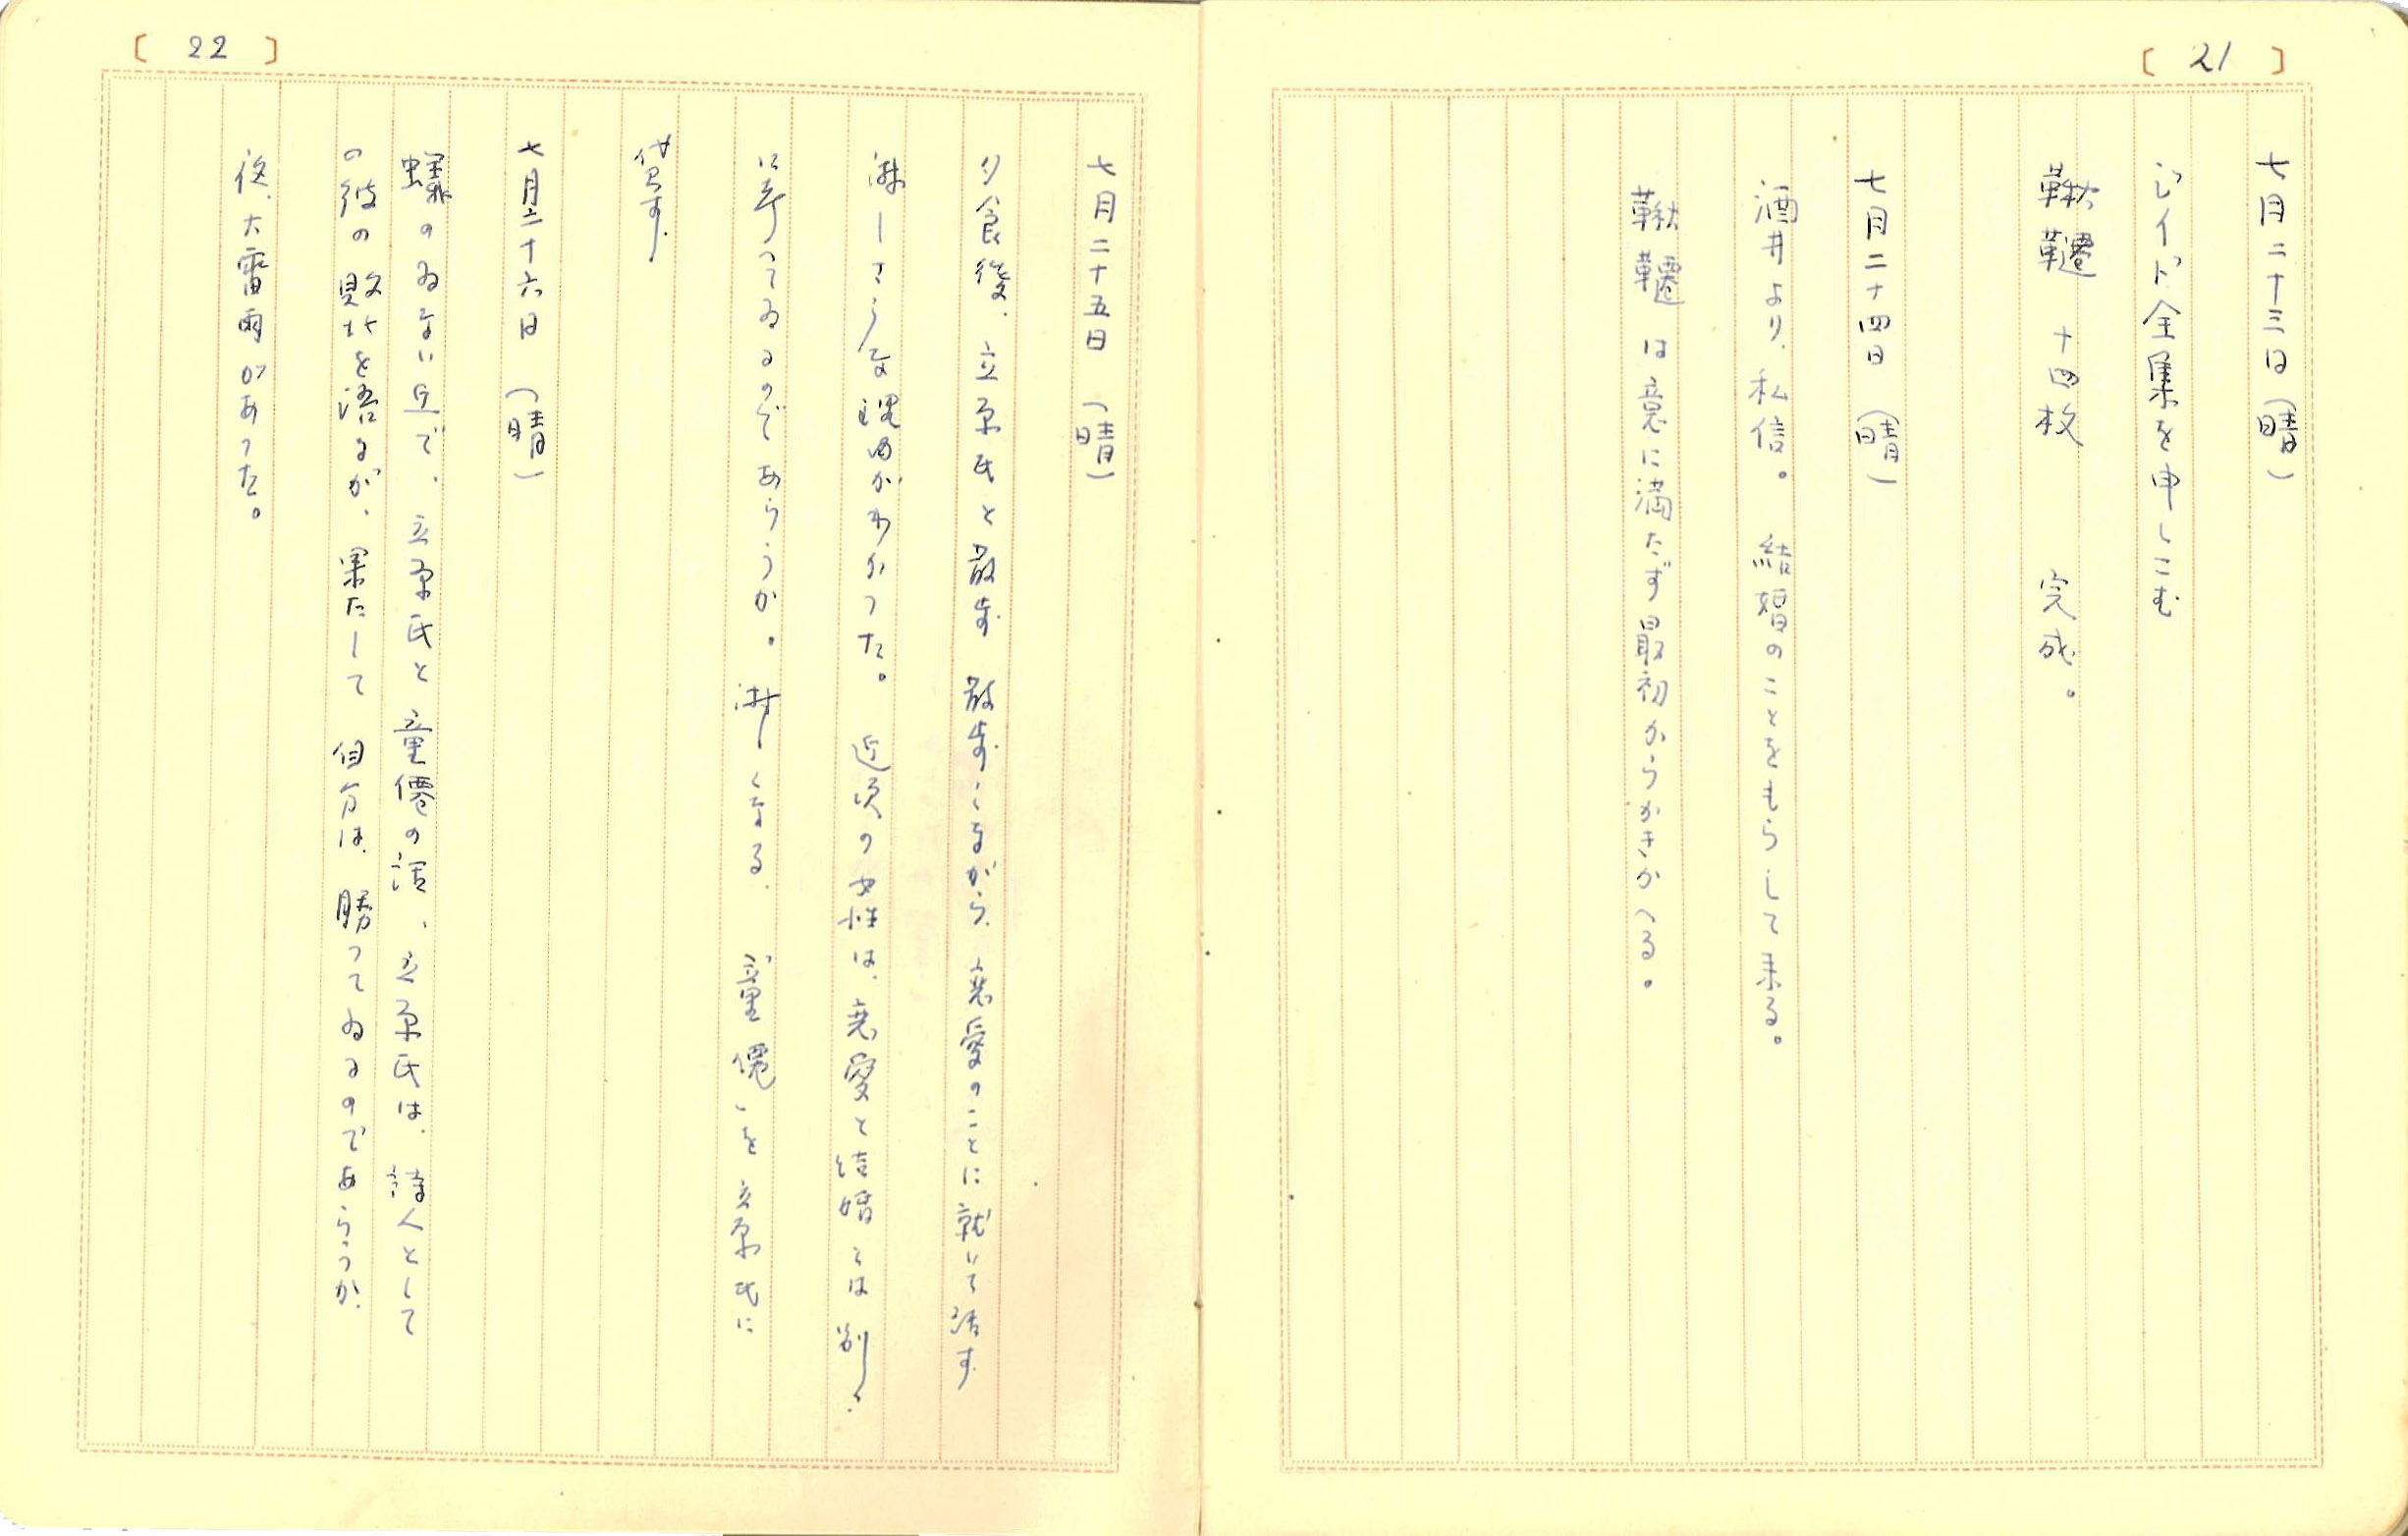 [ 21 ]
七月二十三日（晴）
ジイド全集を申しこむ
鞦韆　十四枚　完成。
七月二十四日（晴）
酒井より、私信。　結婚のことをもらして来る。
鞦韆は意に満たず最初からかきかへる。
[ 22 ]
七月二十五日　（晴）
夕食後、立原氏と散歩　散歩しながら、恋愛のことに就いて話す
淋しさうな理由がわかつた。　近頃の女性は、恋愛と結婚とは別々
に考へてゐるのであらうか。　淋しくなる、　「童僊」を立原氏に
貸す。
七月二十六日　（晴）
蟻のゐない丘で、立原氏と童僊の話、立原氏は、詩人として
の彼の敗北を語るが、果たして　自分は、勝つてゐるのであらうか、
夜、大雷雨があつた。